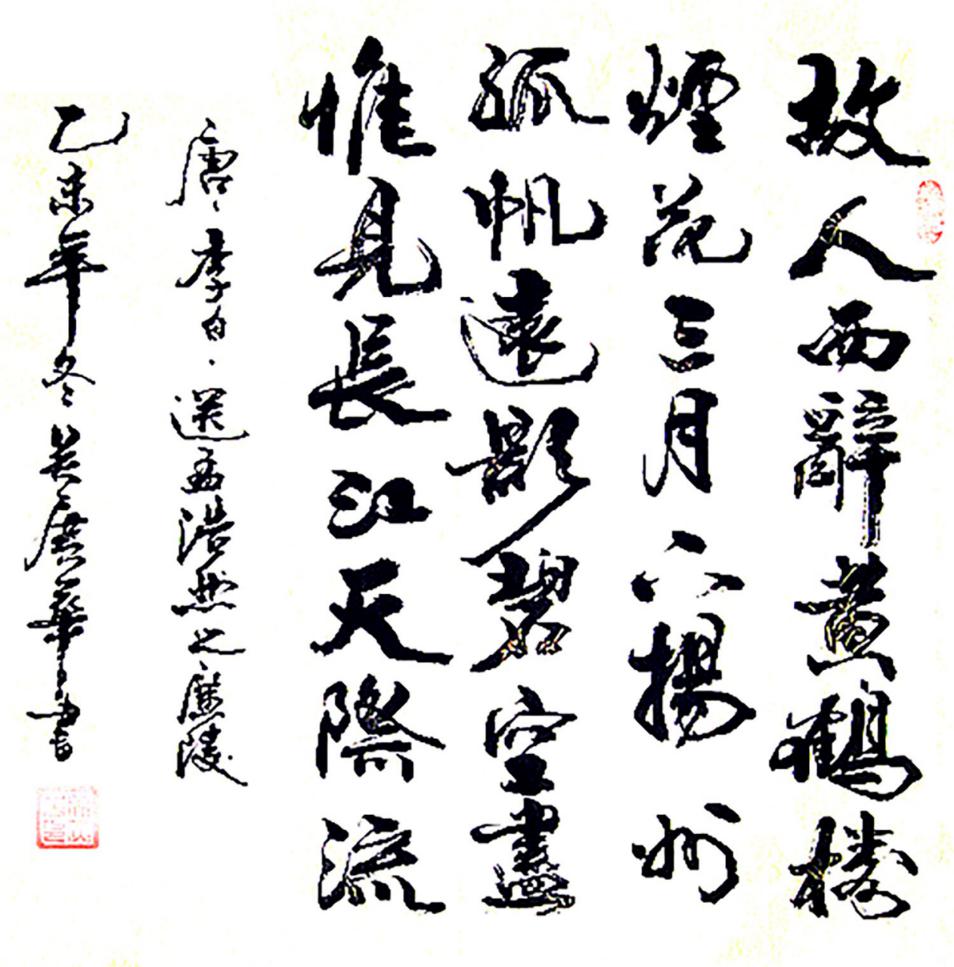 故人西辭黄鶴楼
煙花三月下揚州
孤帆遠影碧空盡
惟見長江天際流
唐、李白、送孟浩然之廣陵
乙未年冬吴广華书